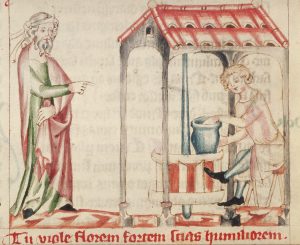 Tu viole florem fortem scias humiliorem.